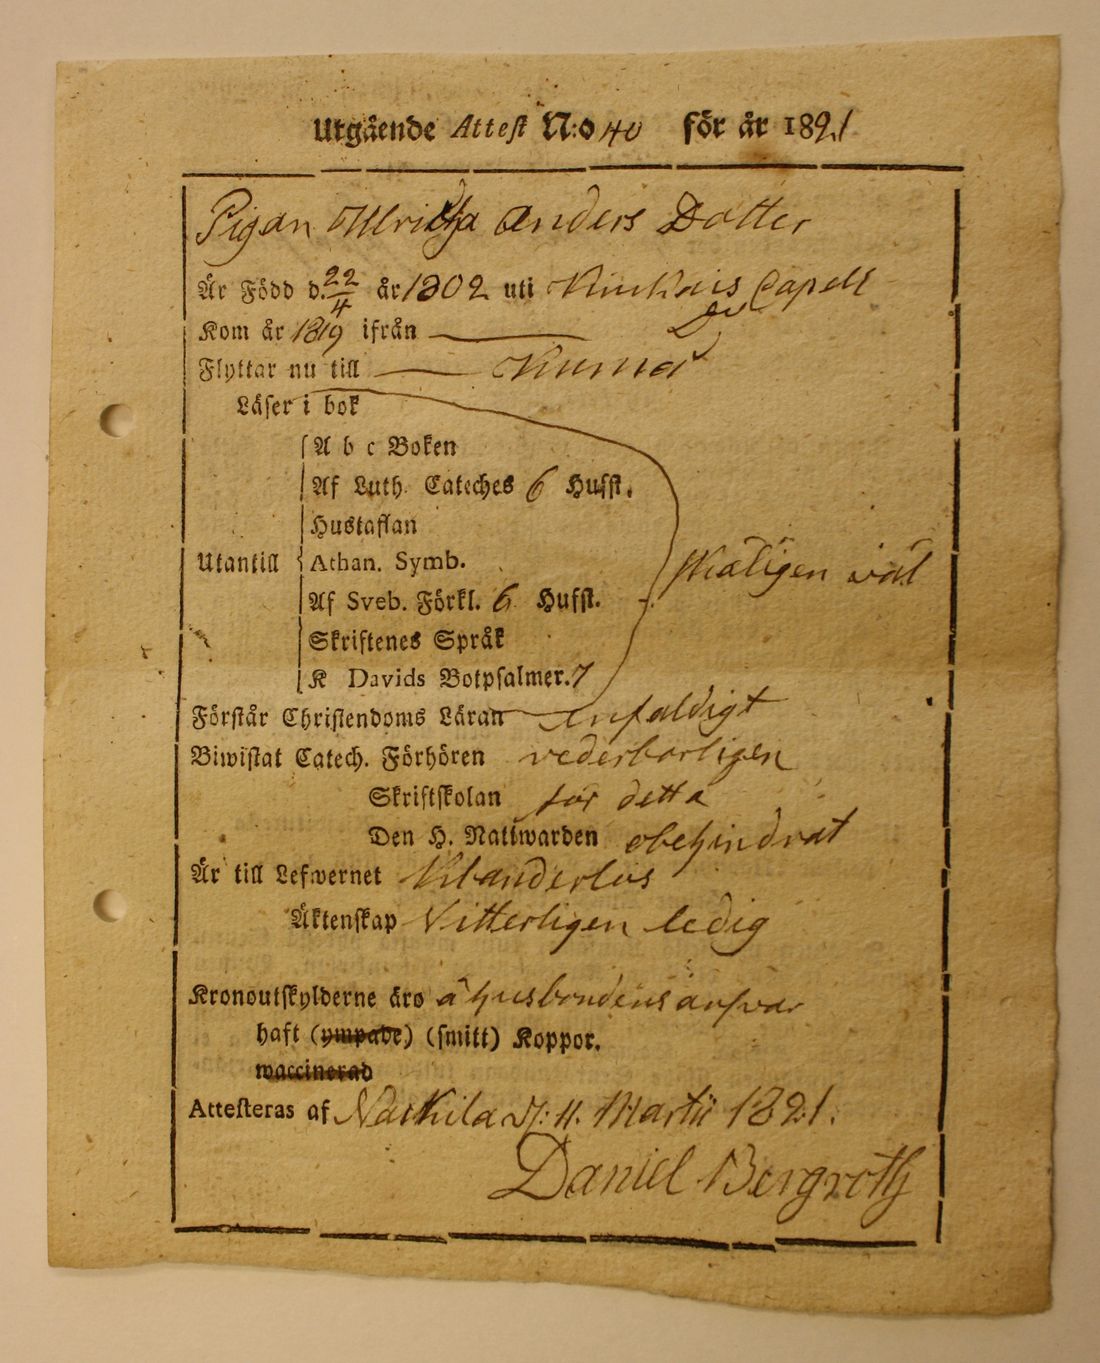 Utgående Attest N:o 40 för år 1821
Pigan Ulrica Anders Dotter
Är Född d. 22/4 år 1802 uti Kiukais Capell
Kom år 1819 ifrån — Do
Flyttar nu till — Kumo
Läser i bok
A b c Boken
Af Luth. Cateches 6 Hufst.
Hustaflan
Utantill Athan. Symb. skäligen wäl
Af Sveb. Förkl. 6 Hufst.
Skriftenes Språk
K Davids Botpsalmer. 7
Förstår Christendoms Läran enfaldigt
Biwistat Catech. Förhören vederborligen
Skriftskolan för detta
Den H. Nattwarden obehindrat
Är till Lefwernet Klanderlös
Äktenskap Vitterligen ledig
Kronoutskylderne äro å husbondens answar
haft (ympade) (smitt) Koppor.
waccinerad
Attesteras af Nackila d. 11. Martii 1821.
Daniel Bergroth